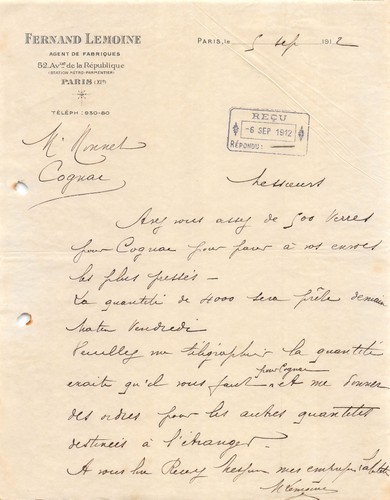 FERNAND LEMOINE
AGENT DE FABRIQUES
52. Avue de la République
(STATION MÉTRO-PARMENTIER)
PARIS (XIe)
TÉLÉPH : 930-80
PARIS, le 5 sep 1912
REÇU
-6 SEP 1912
RÉPONDU:
Mr Monnet
Cognac
Messieurs
Avez vous assez de 500 Verres
pour Cognac pour parer à vos envois
les plus pressés -
La quantité de 4000 sera prête demain
matin Vendredi
Veuillez me télégraphier la quantité
exacte qu'il vous faut pour Cognac et me donner
des ordres pour les autres quantités
destinées à l'étranger.
A vous lire Recevez Messieurs mes
FLemoine